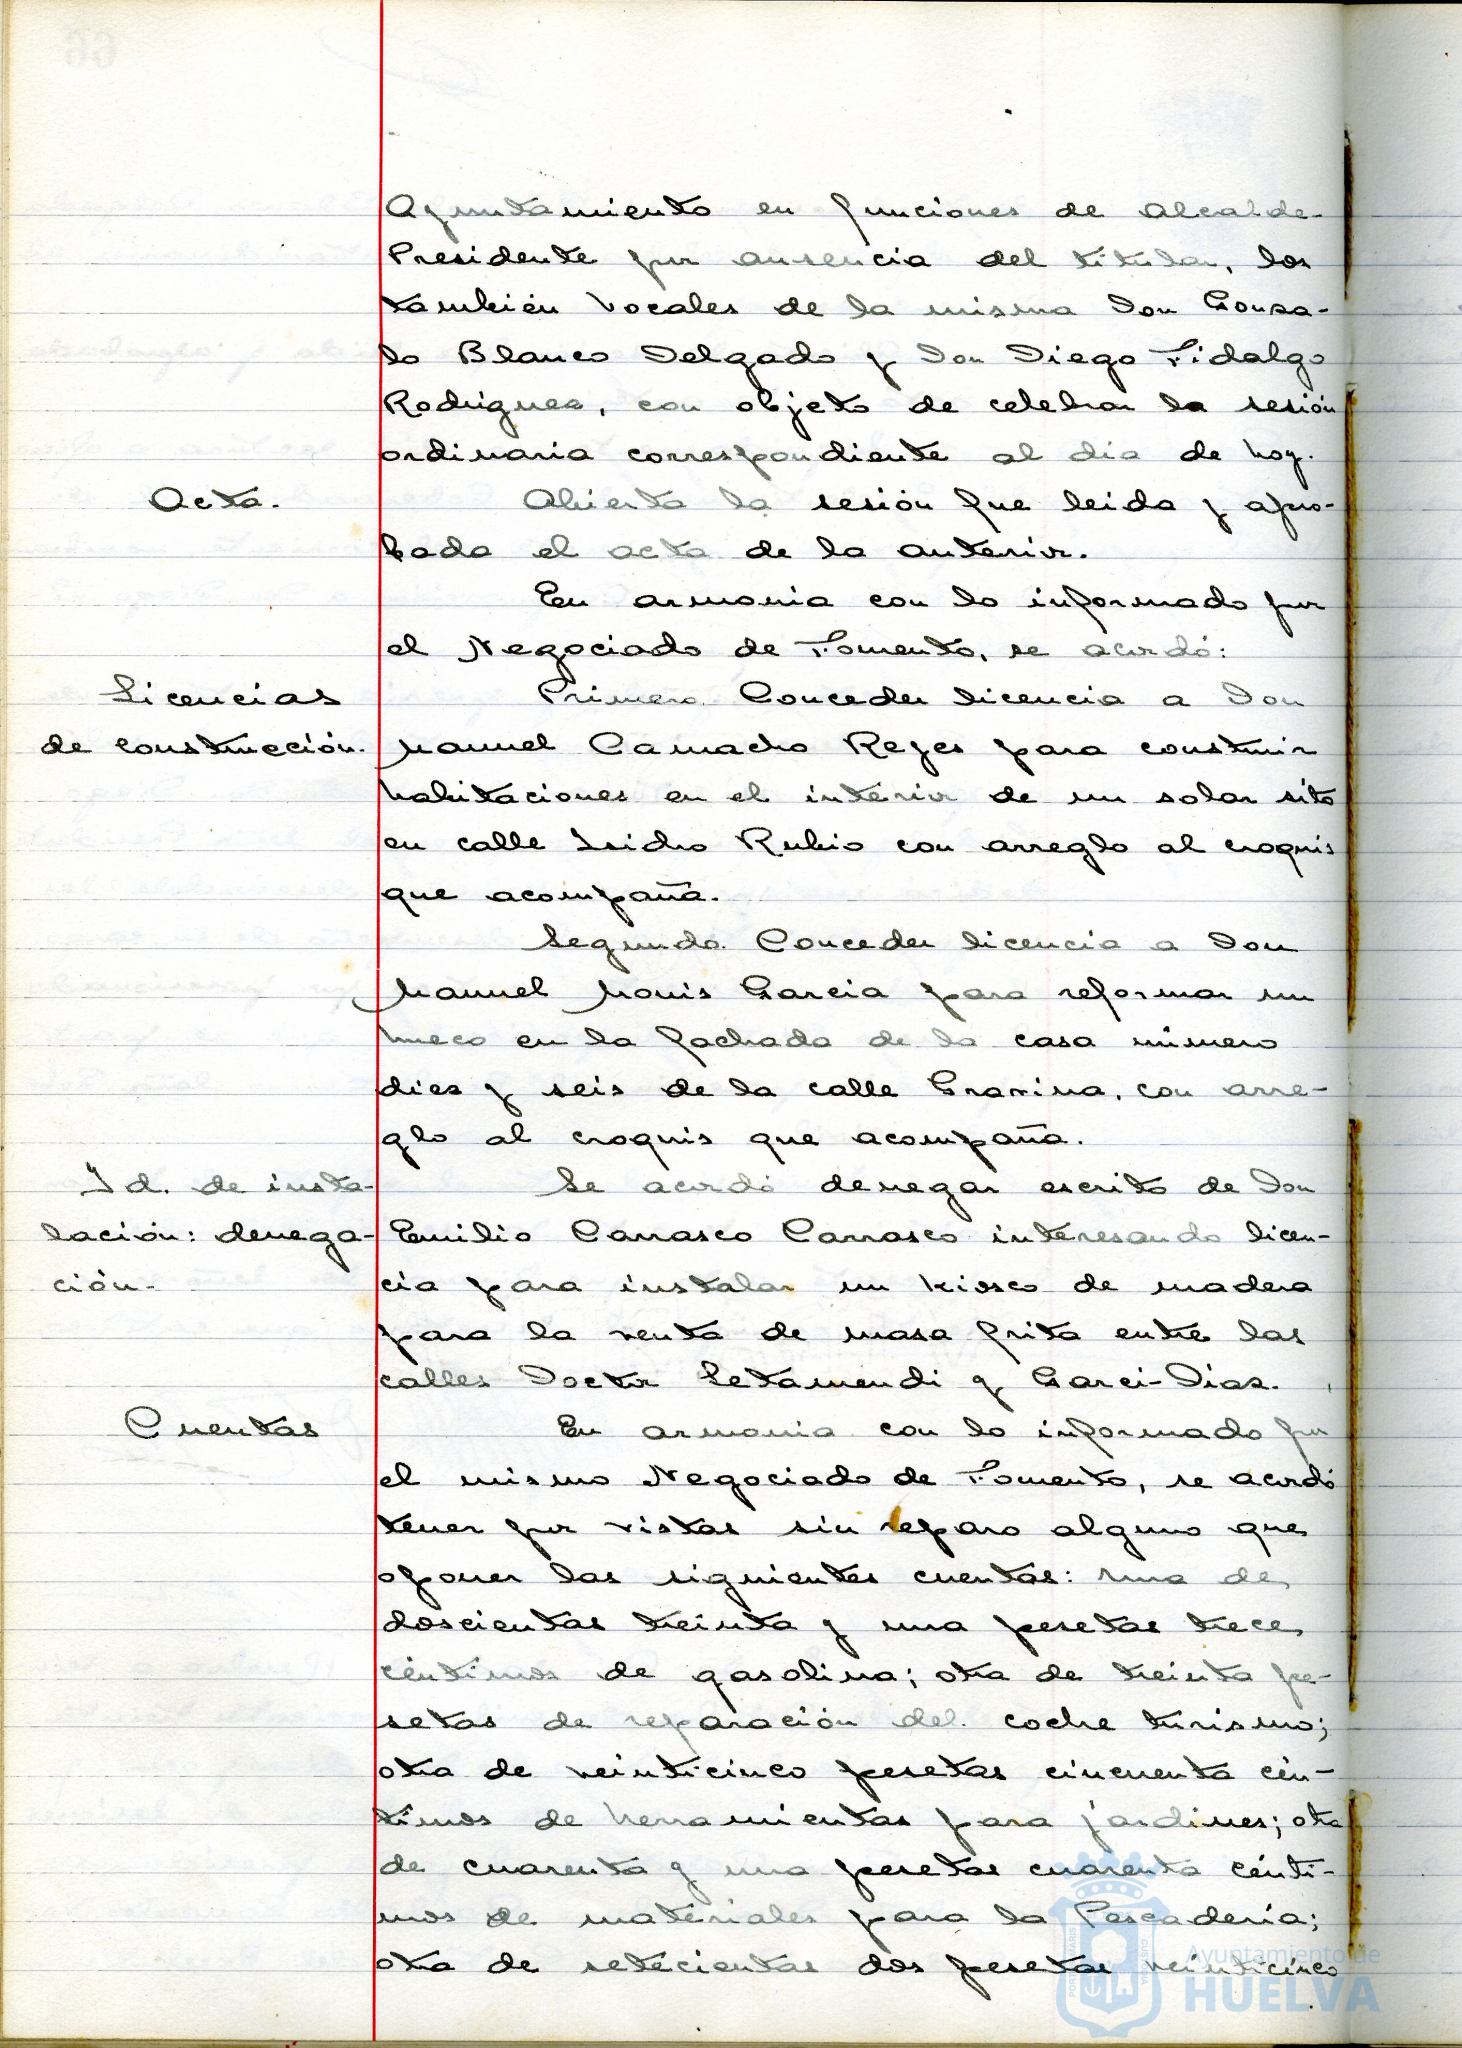 Ayuntamiento en funciones de Alcalde-
Presidente por ausencia del titular, los
también vocales de la misma Don Gonza-
lo Blanco Delgado y Don Diego Fidalgo
Rodriguez, con objeto de celebrar la sesión
ordinaria correspondiente al dia de hoy.
Acta.
Abierta la sesión fue leida y apro-
bada el acta de la anterior.
En armonia con lo informado por
el Negociado de Fomento, se acordó:
Licencias
de construcción.
Primero. Conceder licencia a Don
Manuel Camacho Reyes para construir
habitaciones en el interior de un solar sito
en calle Isidro Rubio con arreglo al croquis
que acompaña.
Segundo. Conceder licencia a Don
Manuel Monis Garcia para reformar un
hueco en la fachada de la casa número
diez y seis de la calle Gravina, con arre-
glo al croquis que acompaña.
Id. de insta-
lación: denega-
ción.
Se acordó denegar escrito de Don
Emilio Carrasco Carrasco interesando licen-
cia para instalar un kiosco de madera
para la venta de masa frita entre las
calles Doctor Letamendi y Garci-Diaz.
Cuentas
En armonia con lo informado por
el mismo Negociado de Fomento, se acordó
tener por vistas sin reparo alguno que
oponer las siguientes cuentas: una de
doscientas treinta y una pesetas trece
céntimos de gasolina; otra de treinta pe-
setas de reparación del coche turismo;
otra de veinticinco pesetas cincuenta cén-
timos de herramientas para jardines; otra
de cuarenta y una pesetas cuarenta cénti-
mos de materiales para la Pescadería;
otra de setecientas dos pesetas veinticinco
Ayuntamiento de
HUELVA